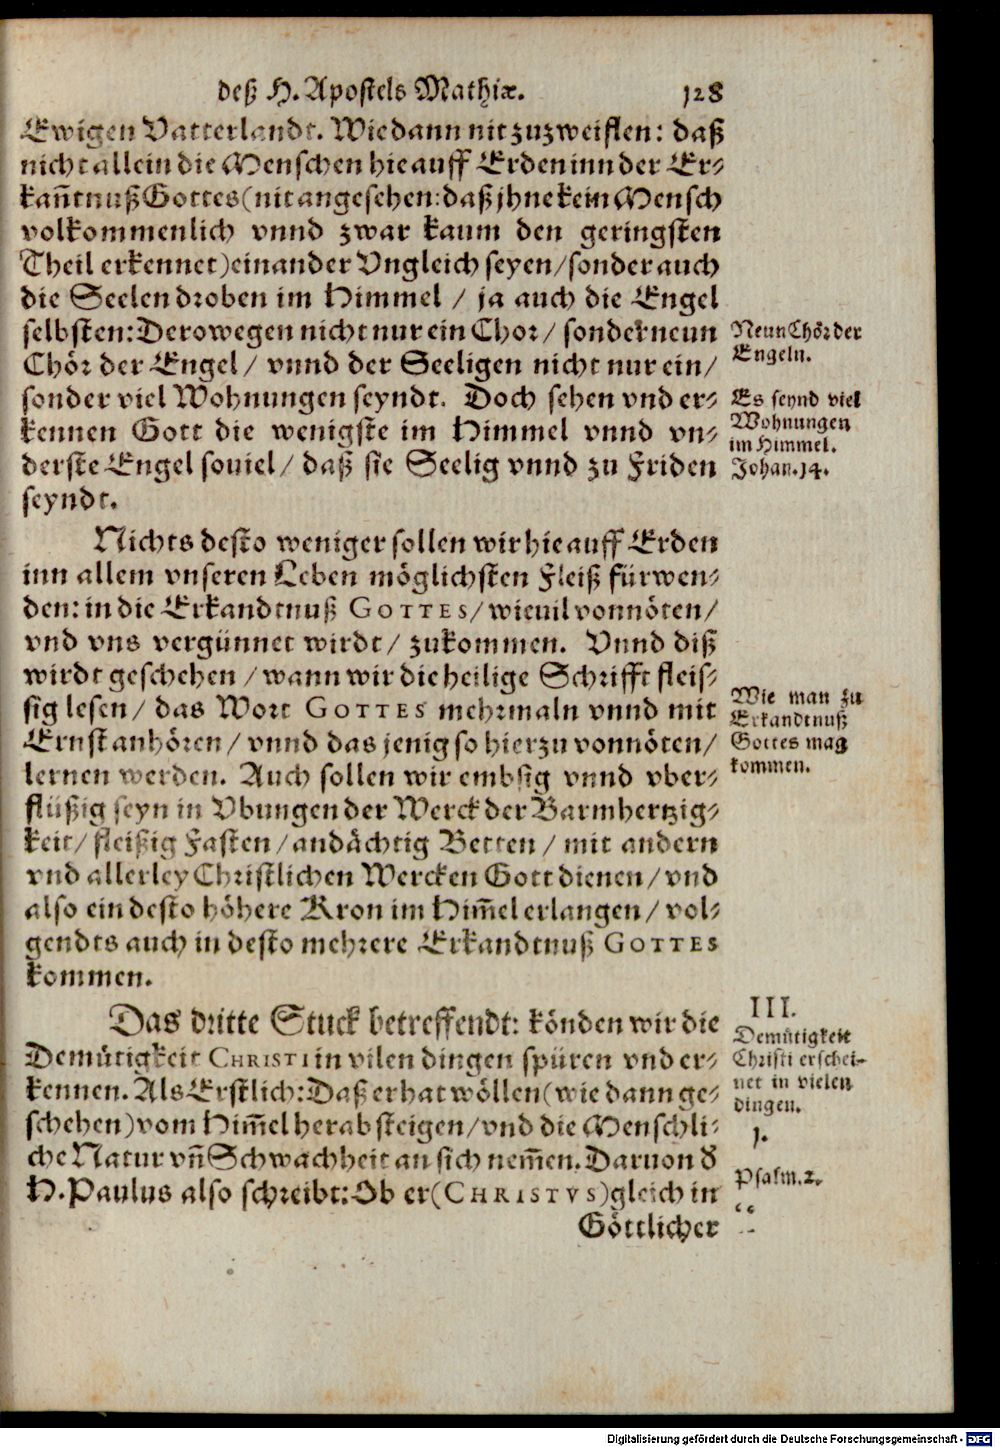 deß H. Apostels Mathiæ. 128
Ewigen Vatterlandt. Wie dann nit zuzweiflen: daß
nicht allein die Menschen hie auff Erden inn der Er⸗
kañtnuß Gottes (nit angesehen: daß jhne kein Mensch
volkommenlich vnnd zwar kaum den geringsten
Theil erkennet) einander Vngleich seyen / sonder auch
die Seelen droben im Himmel / ja auch die Engel
selbsten: Derowegen nicht nur ein Chor / sonder neun
Chör der Engel / vnnd der Seeligen nicht nur ein /
sonder viel Wohnungen seyndt. Doch sehen vnd er⸗
kennen Gott die wenigste im Himmel vnnd vn⸗
derste Engel souiel / daß sie Seelig vnnd zu Friden
seyndt.
Neun Chör der
Engeln.
Es seynd viel
Wohnungen
im Himmel.
Johan. 14.
Nichts desto weniger sollen wir hie auff Erden
inn allem vnseren Leben möglichsten Fleiß fürwen⸗
den: in die Erkandtnuß GOTTES / wieuil vonnöten /
vnd vns vergünnet wirdt / zukommen. Vnnd diß
wirdt geschehen / wann wir die heilige Schrifft fleis⸗
sig lesen / das Wort GOTTES mehrmaln vnnd mit
Ernst anhören / vnnd das jenig so hierzu vonnöten /
lernen werden. Auch sollen wir embsig vnnd vber⸗
flüßig seyn in Vbungen der Werck der Barmhertzig⸗
keit / fleißig Fasten / andächtig Betten / mit andern
vnd allerley Christlichen Wercken Gott dienen / vnd
also ein desto höhere Kron im Him̃el erlangen / vol⸗
gendts auch in desto mehrere Erkandtnuß GOTTES
kommen.
Wie man zu
Erkandtnuß
Gottes mag
kommen.
Das dritte Stuck betreffendt: könden wir die
Demütigkeit CHRISTI in vilen dingen spüren vnd er⸗
kennen. Als Erstlich: Daß er hat wöllen (wie dann ge⸗
schehen) vom Him̃el herab steigen / vnd die Menschli⸗
che Natur vñ Schwachheit an sich nem̃en. Daruon d
H. Paulus also schreibt: Ob er (CHRISTVS) gleich in
Göttlicher
III.
Demütigkeit
Christi erschei⸗
net in vielen
dingen.
1.
Psalm. 2.
“
Digitalisierung gefördert durch die Deutsche Forschungsgemeinschaft - DFG